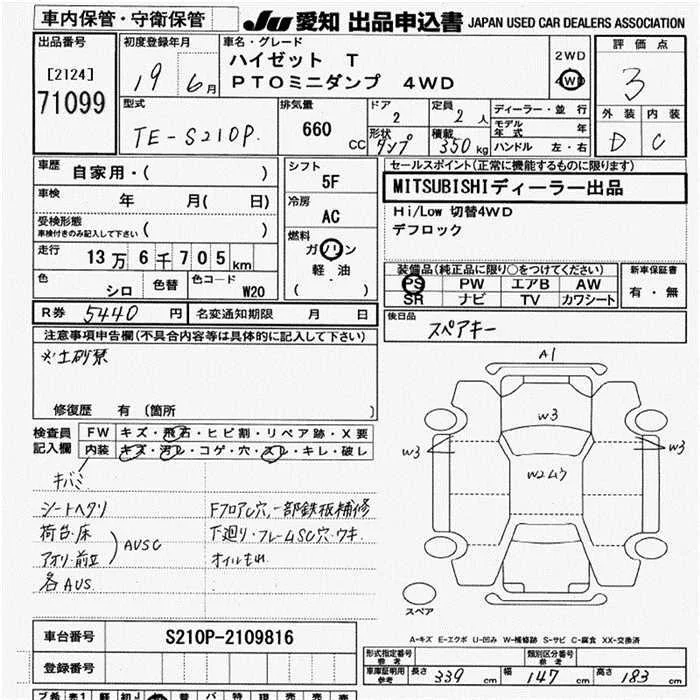 車内保管・守衛保管
JU 愛知 出品申込書 JAPAN USED CAR DEALERS ASSOCIATION
出品番号
[2124]
71099
初度登録年月
19年 6月
車名・グレード
ハイゼット T
PTOミニダンプ 4WD
2WD
4WD
評価点
3
外装 内装
D C
型式
TE-S210P.
排気量
660 CC
ドア
2
形状
ダンプ
定員
2人
積載
350kg
ディーラー・並行
モデル年式 年
ハンドル 左・右
車歴
自家用・( )
車検
年 月( 日)
受検形態
車検付きのみ記入して下さい ( )
走行
13万6千705km
色
シロ
色替
色コード
W20
シフト
5F
冷房
AC
燃料
ガソリン
軽油
( )
セールスポイント(正常に機能するものに限ります)
MITSUBISHIディーラー出品
Hi/Low 切替4WD
デフロック
装備品(純正品に限り○をつけてください)
PS PW エアB AW
SR ナビ TV カワシート
新車保証書
有・無
R券 5440円
名変通知期限 月 日
後日品
スペアキー
注意事項申告欄(不具合内容等は具体的に記入して下さい)
※土砂禁
修復歴 有 [箇所 ]
検査員記入欄
FW キズ・飛石・ヒビ割・リペア跡・X要
内装 キズ・汚レ・コゲ・穴・スレ・キレ・破レ
キバミ
シートヘタリ
荷台・床
アオリ・前立
AUSC
各AUS
FフロアC穴,一部鉄板補修
下廻り・フレームSC穴・ウキ・
オイルもれ
A1
W3
W3
W3
W2ムラ
スペア
A-キズ E-エクボ U-凹み W-補修跡 S-サビ C-腐食 XX-交換済
車台番号
S210P-2109816
登録番号
形式指定番号 参考
類別区分番号 参考
車庫証明用 参考
長さ 339 幅 147 高さ 183